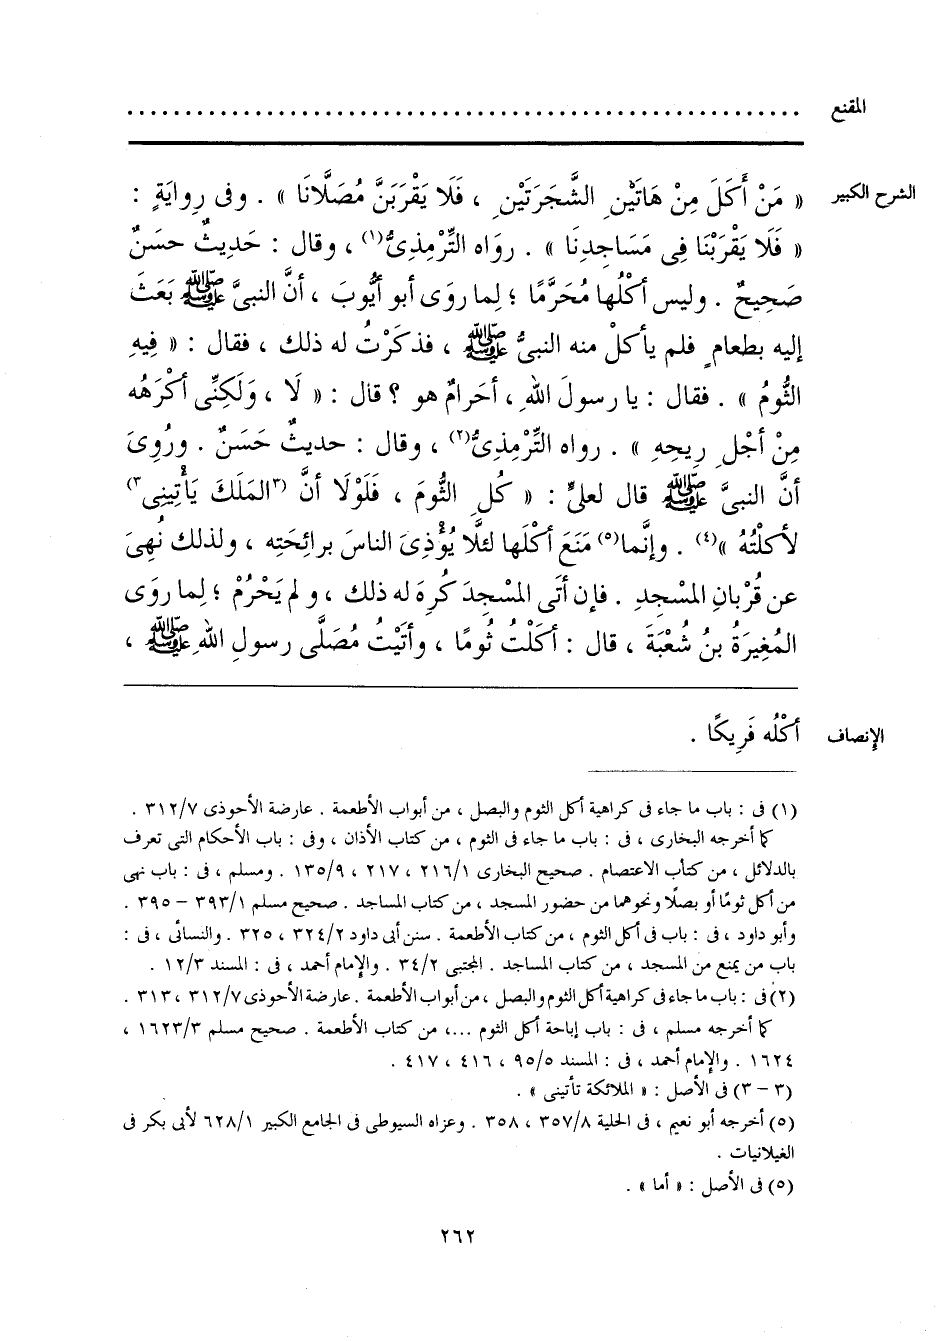 المقنع ......................................................
الشرح الكبير « مَنْ أَكَلَ مِنْ هَاتَيْنِ الشَّجَرَتَيْنِ ، فَلَا يَقْرَبَنَّ مُصَلَّانَا » . وفى رِوايَةٍ :
« فَلَا يَقْرَبْنَا فِى مَسَاجِدِنَا » . رواه التِّرْمِذِىُّ(١) ، وقال : حَدِيثٌ حسَنٌ
صَحِيحٌ . وليس أكْلُها مُحَرَّمًا ؛ لِما روَى أبو أيُّوبَ ، أنَّ النبىَّ ﷺ بَعَثَ
إليه بطعامٍ فلم يأكلْ منه النبىُّ ﷺ ، فذكَرْتُ له ذلك ، فقال : « فِيهِ
الثُّومُ » . فقال : يا رسولَ اللهِ ، أحَرامٌ هو ؟ قال : « لَا ، وَلَكِنِّى أكْرَهُه
مِنْ أجْلِ رِيحِهِ » . رواه التِّرْمِذِىُّ(٢) ، وقال : حديثٌ حَسَنٌ . ورُوِىَ
أنَّ النبىَّ ﷺ قال لعلىٍّ : « كُلِ الثُّومَ ، فَلَوْلَا أنَّ (٣المَلَكَ يَأْتِينِى٣)
لأكلْتُهُ »(٤) . وإنَّما(٥) مَنَعَ أكْلَها لئلَّا يُؤْذِىَ الناسَ برائِحَتِه ، ولذلك نُهِىَ
عن قُرْبانِ المسْجِدِ . فإن أتَى المسْجِدَ كُرِهَ له ذلك ، ولم يَحْرُمْ ؛ لِما روَى
المُغِيرَةُ بنُ شُعْبَةَ ، قال : أكلْتُ ثُومًا ، وأتَيْتُ مُصَلَّى رسولِ اللهِ ﷺ ،
الإنصاف أكْلُه فَرِيكًا .
(١) فى : باب ما جاء فى كراهية أكل الثوم والبصل ، من أبواب الأطعمة . عارضة الأحوذى ٣١٢/٧ .
كما أخرجه البخارى ، فى : باب ما جاء فى الثوم ، من كتاب الأذان ، وفى : باب الأحكام التى تعرف
بالدلائل ، من كتاب الاعتصام . صحيح البخارى ٢١٦/١ ، ٢١٧ ، ١٣٥/٩ . ومسلم ، فى : باب نهى
من أكل ثومًا أو بصلًا ونحوهما من حضور المسجد ، من كتاب المساجد . صحيح مسلم ٣٩٣/١ – ٣٩٥ .
وأبو داود ، فى : باب فى أكل الثوم ، من كتاب الأطعمة . سنن أبى داود ٣٢٤/٢ ، ٣٢٥ . والنسائى ، فى :
باب من يمنع من المسجد ، من كتاب المساجد . المجتبى ٣٤/٢ . والإمام أحمد ، فى : المسند ١٢/٣ .
(٢) فى : باب ما جاء فى كراهية أكل الثوم والبصل ، من أبواب الأطعمة . عارضة الأحوذى ٣١٢/٧ ، ٣١٣ .
كما أخرجه مسلم ، فى : باب إباحة أكل الثوم ... ، من كتاب الأطعمة . صحيح مسلم ١٦٢٣/٣ ،
١٦٢٤ . والإمام أحمد ، فى : المسند ٩٥/٥ ، ٤١٦ ، ٤١٧ .
(٣ – ٣) فى الأصل : « الملائكة تأتينى » .
(٥) أخرجه أبو نعيم ، فى الحلية ٣٥٧/٨ ، ٣٥٨ . وعزاه السيوطى فى الجامع الكبير ٦٢٨/١ لأبى بكر فى
الغيلانيات .
(٥) فى الأصل : « أما » .
٢٦٢